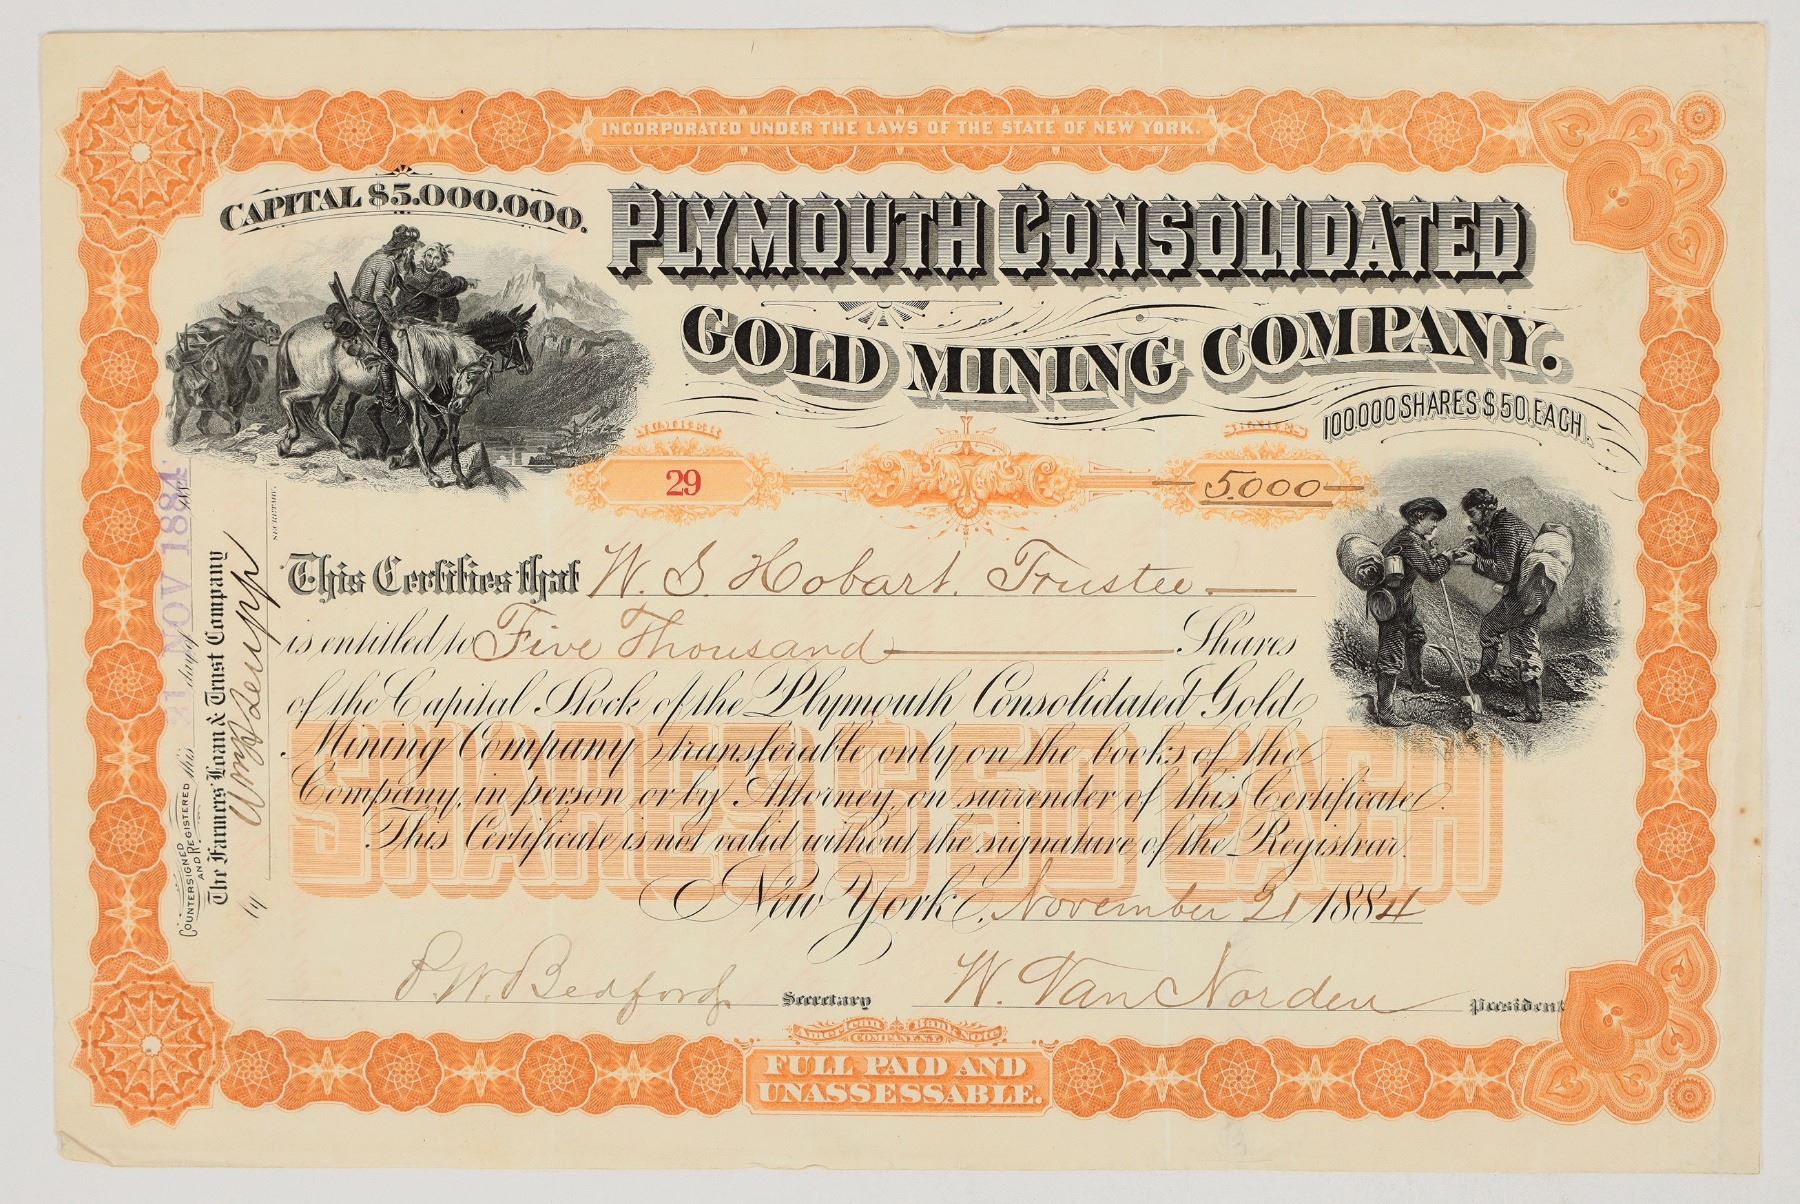 INCORPORATED UNDER THE LAWS OF THE STATE OF NEW YORK.
CAPITAL $5.000.000.
PLYMOUTH CONSOLIDATED
GOLD MINING COMPANY.
100.000 SHARES $50. EACH.
NUMBER
29
SHARES
5.000
This Certifies that W. S. Hobart. Trustee
is entitled to Five Thousand Shares
of the Capital Stock of the Plymouth Consolidated Gold
Mining Company, transferable only on the books of the
Company, in person or by Attorney, on surrender of this Certificate.
This Certificate is not valid without the signature of the Registrar.
SHARES $50 EACH
New York, November 21 1884
P. W. Bedford Secretary
W. Van Norden President
American Bank Note
COMPANY, N.Y.
FULL PAID AND
UNASSESSABLE.
COUNTERSIGNED
AND REGISTERED this 21 day of NOV 1884
The Farmers' Loan & Trust Company
by
SECRETARY.